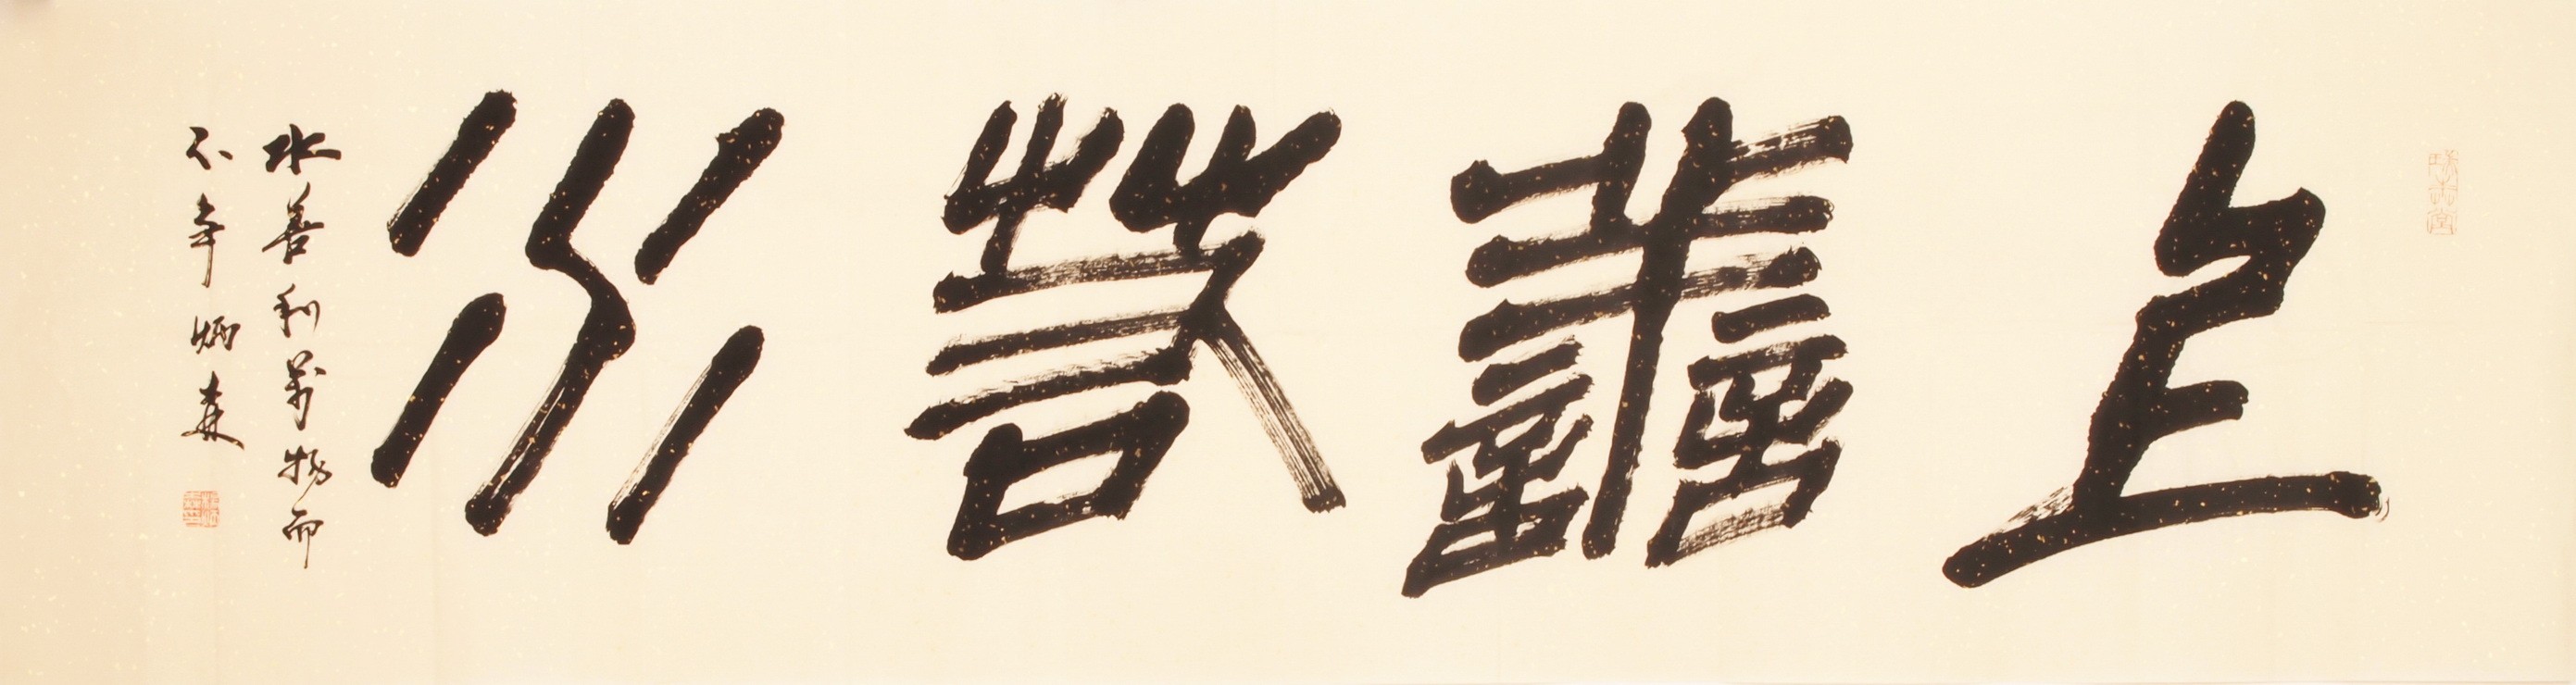 上善若水
水善利萬物而
不爭 炳森